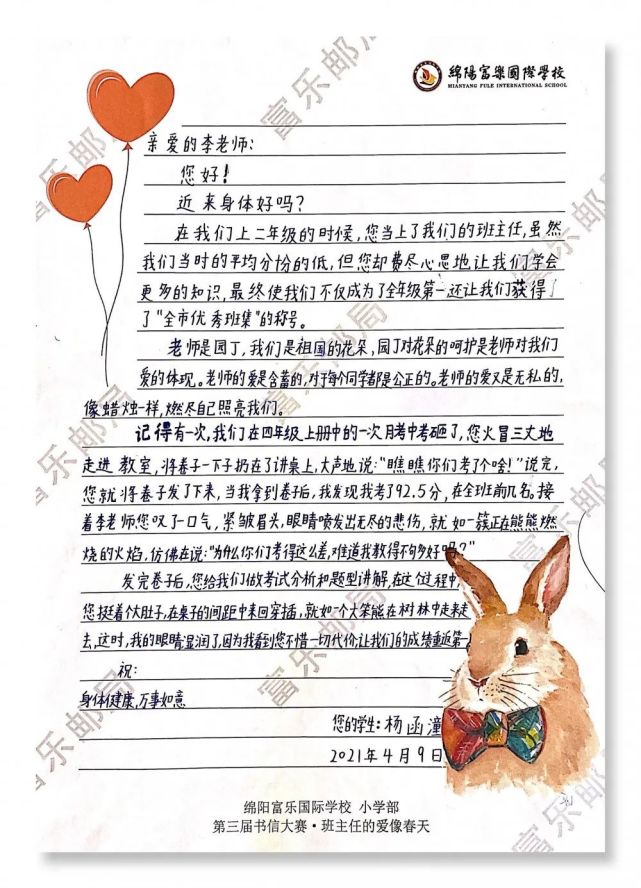 綿陽富樂國際學校
MIANYANG FULE INTERNATIONAL SCHOOL
亲爱的李老师:
您好!
近来身体好吗?
在我们上二年级的时候,您当上了我们的班主任,虽然
我们当时的平均分份的低,但您却费尽心思地让我们学会
更多的知识,最终使我们不仅成为了全年级第一还让我们获得
了“全市优秀班集”的称号。
老师是园丁,我们是祖国的花朵,园丁对花朵的呵护是老师对我们
爱的体现。老师的爱是含蓄的,对于每个同学都是公正的。老师的爱又是无私的,
像蜡烛一样,燃尽自己照亮我们。
记得有一次,我们在四年级上册中的一次月考中考砸了,您火冒三丈地
走进教室,将卷子一下子扔在了讲桌上,大声地说:“瞧瞧你们考了个啥!”说完,
您就将卷子发了下来,当我拿到卷子后,我发现我考了92.5分,在全班前几名。接
着李老师您叹了一口气,紧皱眉头,眼睛喷发出无尽的悲伤,就如一簇正在熊熊燃
烧的火焰,仿佛在说:“为什么你们考得这么差,难道我教得不够多好吗?”
发完卷子后,您给我们做考试分析和题型讲解,在这个过程中,
您挺着个大肚子,在桌子的间距中来回穿插,就如一个大笨熊在树林中走来走
去,这时,我的眼睛湿润了,因为我看到您不惜一切代价让我们的成绩重返第一
祝:
身体健康,万事如意
您的学生:杨函潼
2021年4月9日
绵阳富乐国际学校 小学部
第三届书信大赛·班主任的爱像春天
富乐邮局
富乐邮局
富乐邮局
富乐邮局
富乐邮局
富乐邮局
富乐邮局
富乐邮局